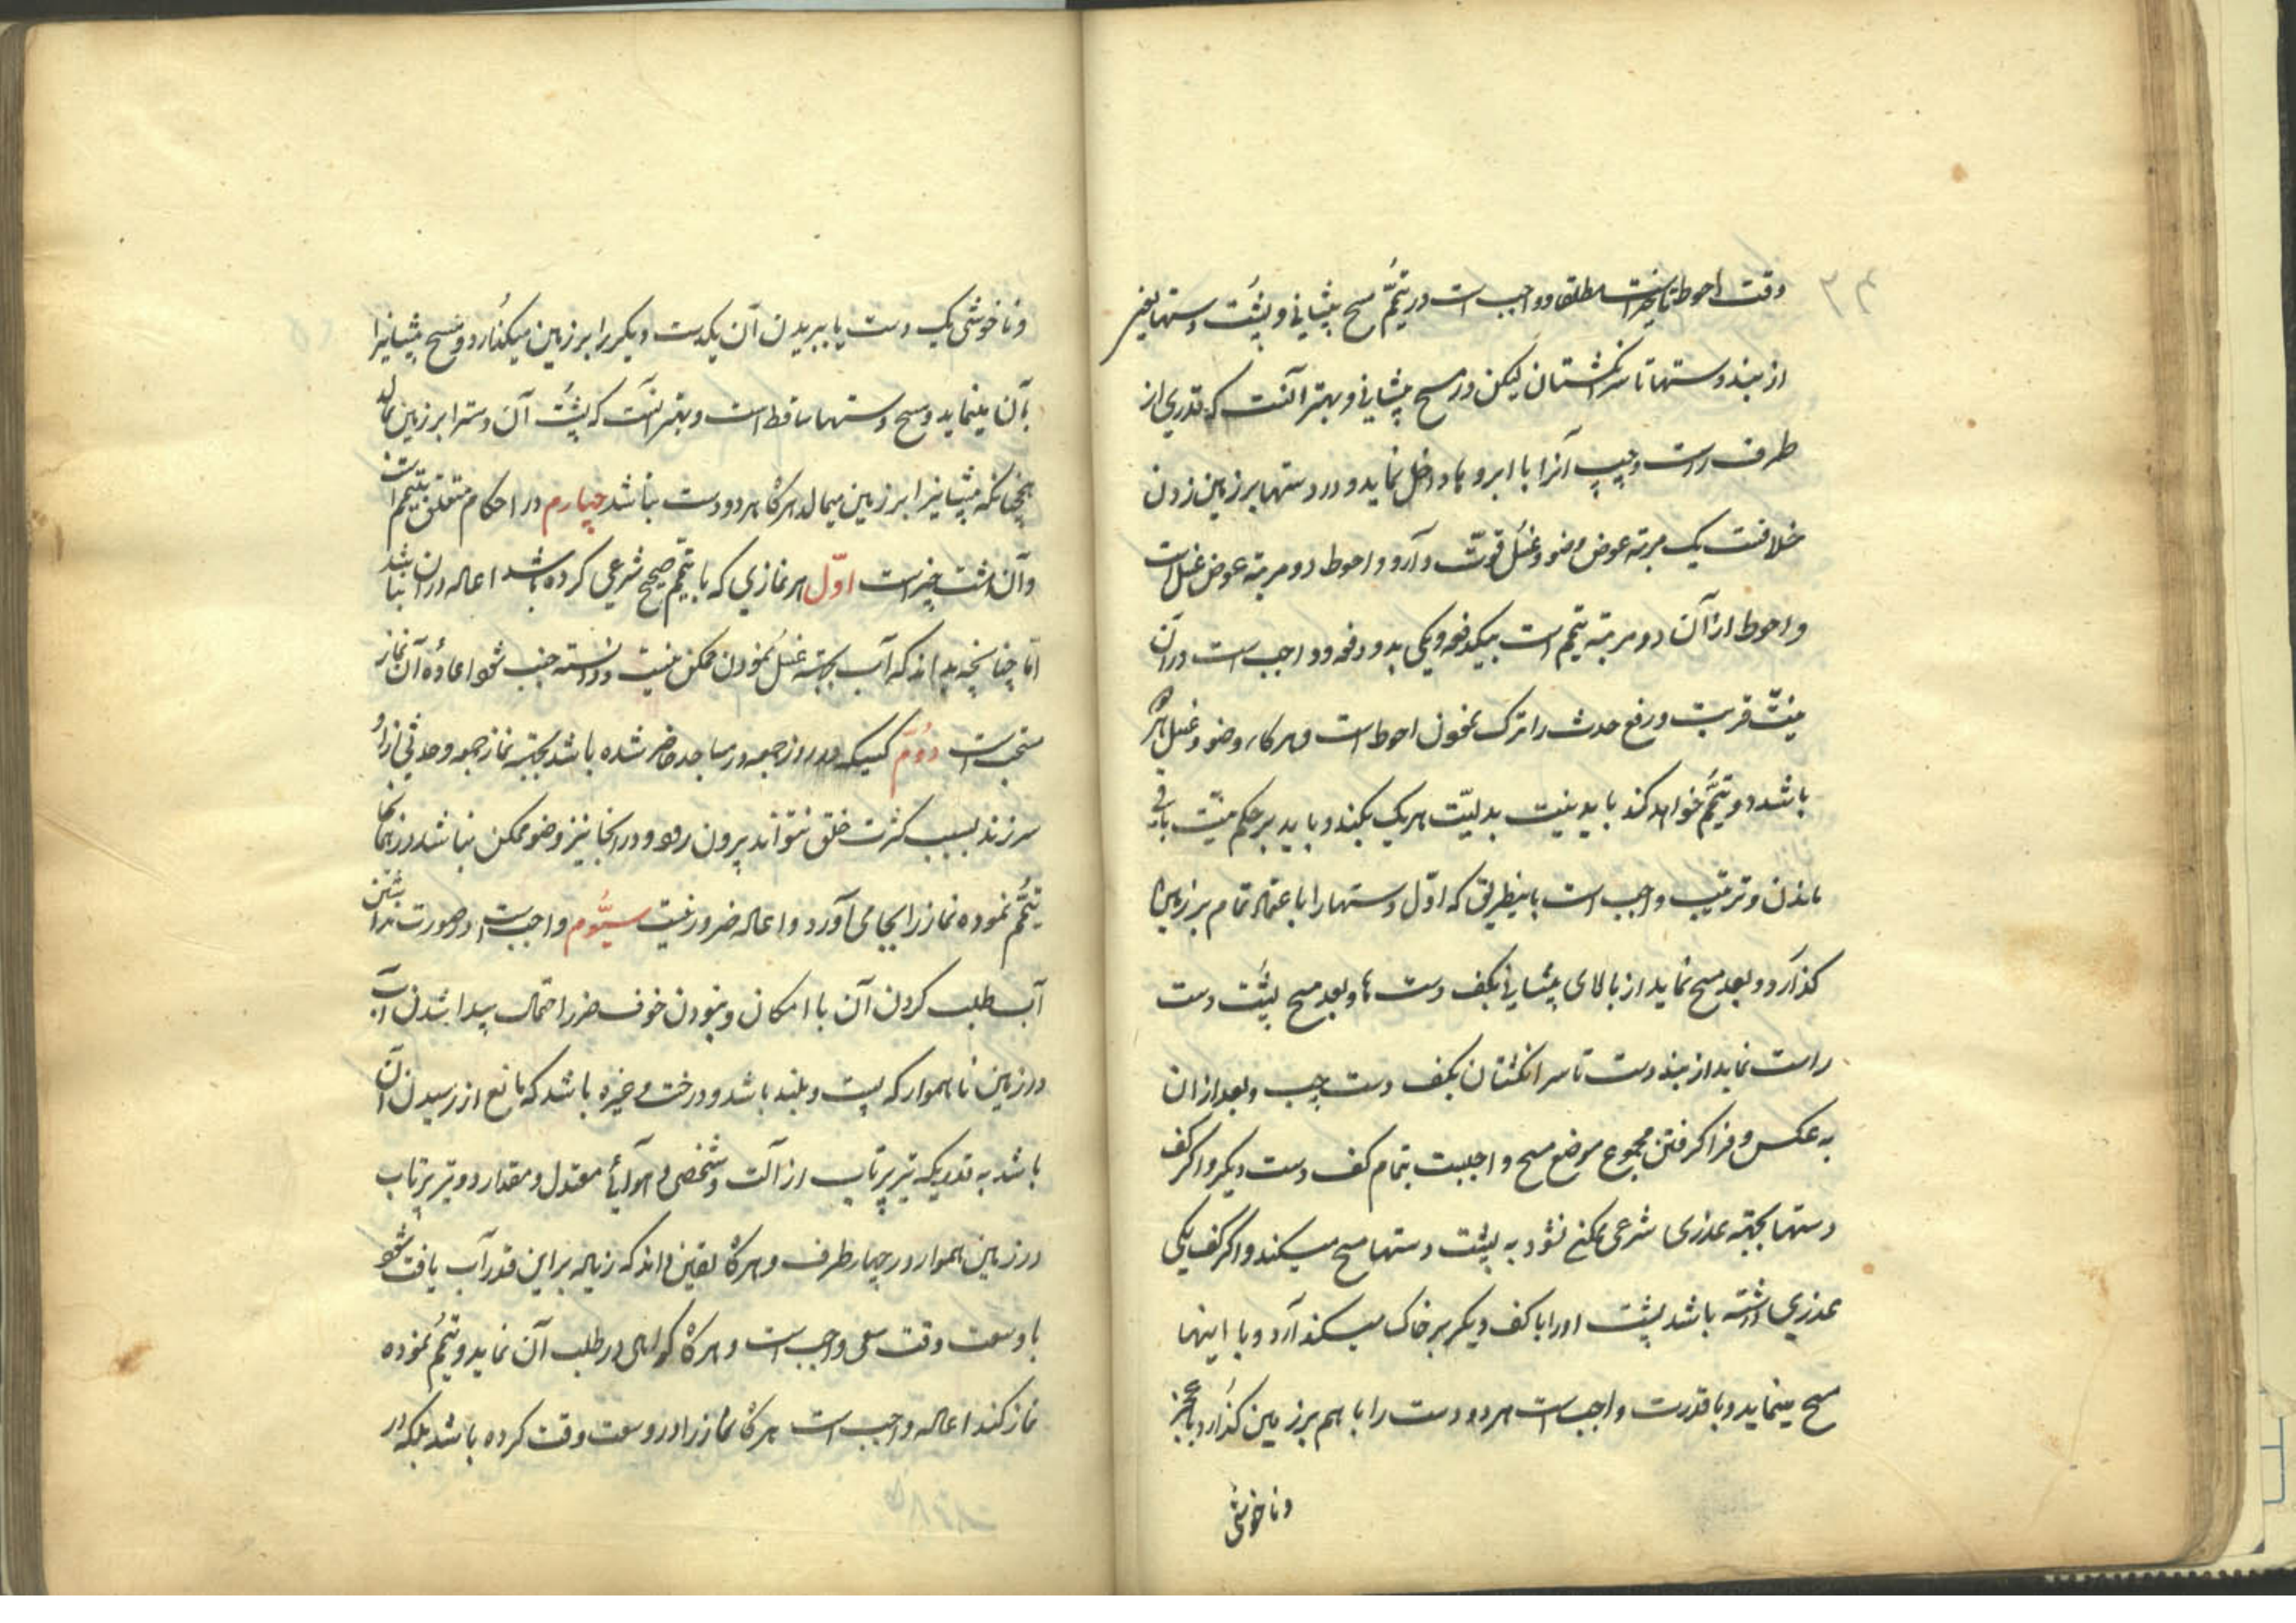 وقت احوط تاخیر است مطلقا و واجب است در تیمّم مسح پیشانی و پشت دستها یعنی
از بند دستها تا سر انگشتان لیکن در مسح پیشانی و بهتر آنست که قدری از
طرف راست و چپ آنرا با ابروها داخل نماید و در دستها بر زمین زدن
خلافست یک مرتبه عوض وضو و غسل قوّت دارد و احوط دو مرتبه عوض غسل است
و احوط از آن دو مرتبه تیمم است بیکدفعه و یکی بدو دفعه و واجب است در آن
نیّت قربت و رفع حدث را ترک نمودن احوط است و هرگاه وضو و غسل هر
باشد دو تیمّم خواهد کند باید نیت بدلیّت هر یک بکند و باید بر حکم نیّت باقی
ماندن و ترتیب واجب است باینطریق که اوّل دستها را با عتماد تمام بر زمین
گذارد و بعد مسح نماید از بالای پیشانی بکف دست ها و بعد مسح پشت دست
راست نماید از بند دست تا سر انگشتان بکف دست چپ و بعد از ان
به عکس و فرا گرفتن مجموع موضع مسح واجبست بتمام کف دست دیگر و اگر کف
دستها بجهته عذری شرعی ممکن نشود به پشت دستها مسح میکند و اگر کف یکی
عذری داشته باشد پشت او را با کف دیگر بر خاک میگذارد و با اینها
مسح مینماید و با قدرت واجب است هر دو دست را با هم بر زمین گذارد و با عجز
و ناخوشی
و ناخوشی یک دست یا ببریدن آن یکدست دیگر را بر زمین میگذارد و مسح پیشانیرا
بآن مینماید و مسح دستها ساقط است و بهتر آنست که پشت آن دستر ابر زمین بمالد
همچنانکه پیشانیرا بر زمین میمالد هرگاه هر دو دست نباشد چهارم در احکام متعلق بتیمم است
و آن هشت چیز است اوّل هر نمازی که با تیمّم صحیح شرعی کرده باشد اعاده در ان نباشد
امّا چنانچه بداند که آب بجهته غسل نمودن ممکن نیست و دانسته جنب شود اعاده آن نماز
مستحب است دوّم کسیکه در روز جمعه در مساجد حاضر شده باشد بجهته نماز جمعه و حدثی از او
سرزند بسبب کثرت خلق نتواند بیرون رود و در انجا نیز وضو ممکن نباشد در انجا
تیمّم نموده نماز را بجا می آورد و اعاده ضرور نیست سیّوم واجب است در صورت نداشتن
آب طلب کردن آن با امکان و نبودن خوف ضرر احتمال پیدا شدن آب
در زمین ناهموار که پست و بلند باشد و درخت و غیره باشد که مانع از رسیدن آن
باشد به قدریکه تیر پرتاب از آلت و شخصی و هوائی معتدل و مقدار دو تیر پرتاب
در زمین هموار در چهار طرف و هرگاه یقین داند که زیاده بر این قدر آب یافت شود
با وسعت وقت سعی واجب است و هرگاه کواهی در طلب آن نماید و تیمّم نموده
نماز کند اعاده واجب است هرگاه نماز را در وسعت وقت کرده باشد بلکه در